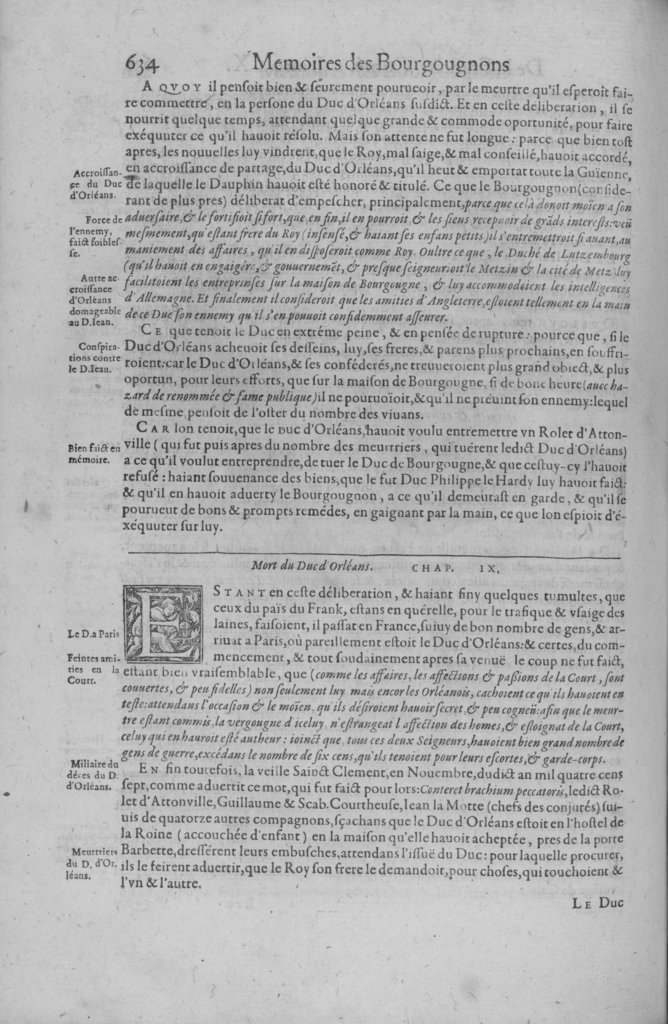 634 Memoires des Bourgougnons
A QVOY il penſoit bien & ſeurement pourueoir, par le meurtre qu'il eſperoit fai-
re commettre, en la perſone du Duc d'Orléans ſuſdict. Et en ceſte déliberation, il ſe
nourrit quelque temps, attendant quelque grande & commode oportunité, pour faire
exéquuter ce qu'il hauoit réſolu. Mais ſon attente ne fut longue: parce que bien toſt
apres, les nouuelles luy vindrent, que le Roy, mal ſaige, & mal conſeillé, hauoit accordé,
en accroiſſance de partage, du Duc d'Orléans, qu'il heut & emportat toute la Guienne,
de laquelle le Dauphin hauoit eſté honoré & titulé. Ce que le Bourgougnon (conſide-
rant de plus pres) déliberat d'empeſcher, principalement, parce que celà donoit moïen a ſon
aduerſaire, & le fortifioit ſi fort, que, en fin, il en pourroit, & les ſiens recepuoir de grāds intereſts: veü
meſmement, qu'eſtant frere du Roy (inſenſé, & haiant ſes enfans petits) il s'entremettroit ſi auant, au
maniement des affaires, qu'il en diſpoſeroit comme Roy. Oultre ce que, le Duché de Lutzembourg
(qu'il hauoit en engaigére, & gouuernemēt, & preſque ſeigneurioit le Metzin & la cité de Metz) luy
facilitoient les entreprinſes ſur la maiſon de Bourgougne, & luy accommodoient les intelligences
d'Allemagne. Et finalement il conſideroit que les amities d'Angleterre, eſtoient tellement en la main
de ce Duc ſon ennemy qu'il s'en pouuoit confidemment aſſeurer.
CE que tenoit le Duc en extréme peine, & en penſée de rupture: pource que, ſi le
Duc d'Orléans acheuoit ſes deſſeins, luy, ſes freres, & parens plus prochains, en ſouffri-
roient: car le Duc d'Orléans, & ſes confédérés, ne treuueroient plus grand obiect, & plus
oportun, pour leurs efforts, que ſur la maiſon de Bourgougne, ſi de bonc heure (auec ha-
zard de renommée & fame publique) il ne pouruoïoit, & qu'il ne préuint ſon ennemy: lequel
de meſme, penſoit de l'oſter du nombre des viuans.
CAR lon tenoit, que le Duc d'Orléans, hauoit voulu entremettre vn Rolet d'Atton-
ville (qui fut puis apres du nombre des meurtriers, qui tuérent ledict Duc d'Orléans)
a ce qu'il voulut entreprendre, de tuer le Duc de Bourgougne, & que ceſtuy-cy l'hauoit
refuſé: haiant ſouuenance des biens, que le fut Duc Philippe le Hardy luy hauoit faict:
& qu'il en hauoit aduerty le Bourgougnon, a ce qu'il demeuraſt en garde, & qu'il ſe
pourueut de bons & prompts remédes, en gaignant par la main, ce que lon eſpioit d'é-
xéquuter ſur luy.
Accroiſſan-
ce du Duc
d'Orléans.
Force de
l'ennemy,
faict foibleſ-
ſe.
Autre ac
croiſſance
d'Orléans
domageable
au D. Iean.
Conſpira-
tions contre
le D. Iean.
Bien faict en
mémoire.
Mort du Duc d'Orléans. CHAP. IX.
ESTANT en ceſte déliberation, & haiant finy quelques tumultes, que
ceux du païs du Frank, eſtans en quérelle, pour le trafique & vſaige des
laines, faiſoient, il paſſat en France, ſuiuy de bon nombre de gens, & ar-
riuat a Paris, où pareillement eſtoit le Duc d'Orléans: & certes, du com-
mencement, & tout ſoudainement apres ſa venuë, le coup ne fut faict,
eſtant bien vraiſemblable, que (comme les affaires, les affections & paßions de la Court, ſont
couuertes, & peu fidelles) non ſeulement luy, mais encor les Orléanois, cachoient ce qu'ils hauoient en
teſte: attendans l'occaſion & le moïen, qu'ils déſiroient hauoir ſecret, & peu cogneu: afin que le meur-
tre eſtant commis, la vergougne d'iceluy, n'eſtrangeat l'affection des homes, & eſloignat de la Court,
celuy qui en hauroit eſté autheur: ioinct que, tous ces deux Seigneurs, hauoient bien grand nombre de
gens de guerre, excédans le nombre de ſix cens, qu'ils tenoient pour leurs eſcortes, & garde-corps.
EN fin toutefois, la veille Sainct Clement, en Nouembre, dudict an mil quatre cens
ſept, comme aduertit ce mot, qui fut faict pour lors: Conteret brachium peccatoris, ledict Ro-
let d'Attonville, Guillaume & Scab. Courtheuſe, Iean la Motte (chefs des conjurés) ſui-
uis de quatorze autres compagnons, ſçachans que le Duc d'Orléans eſtoit en l'hoſtel de
la Roine (accouchée d'enfant) en la maiſon qu'elle hauoit acheptée, pres de la porte
Barbette, dreſſérent leurs embuſches, attendans l'iſſuë du Duc: pour laquelle procurer,
ils le feirent aduertir, que le Roy ſon frere le demandoit, pour choſes, qui touchoient &
l'vn & l'autre.
Le D. a Paris
Feintes ami-
ties en la
Court.
Miliaire du
déces du D.
d'Orléans.
Meurtriers
du D. d'Or,
léans.
LE Duc